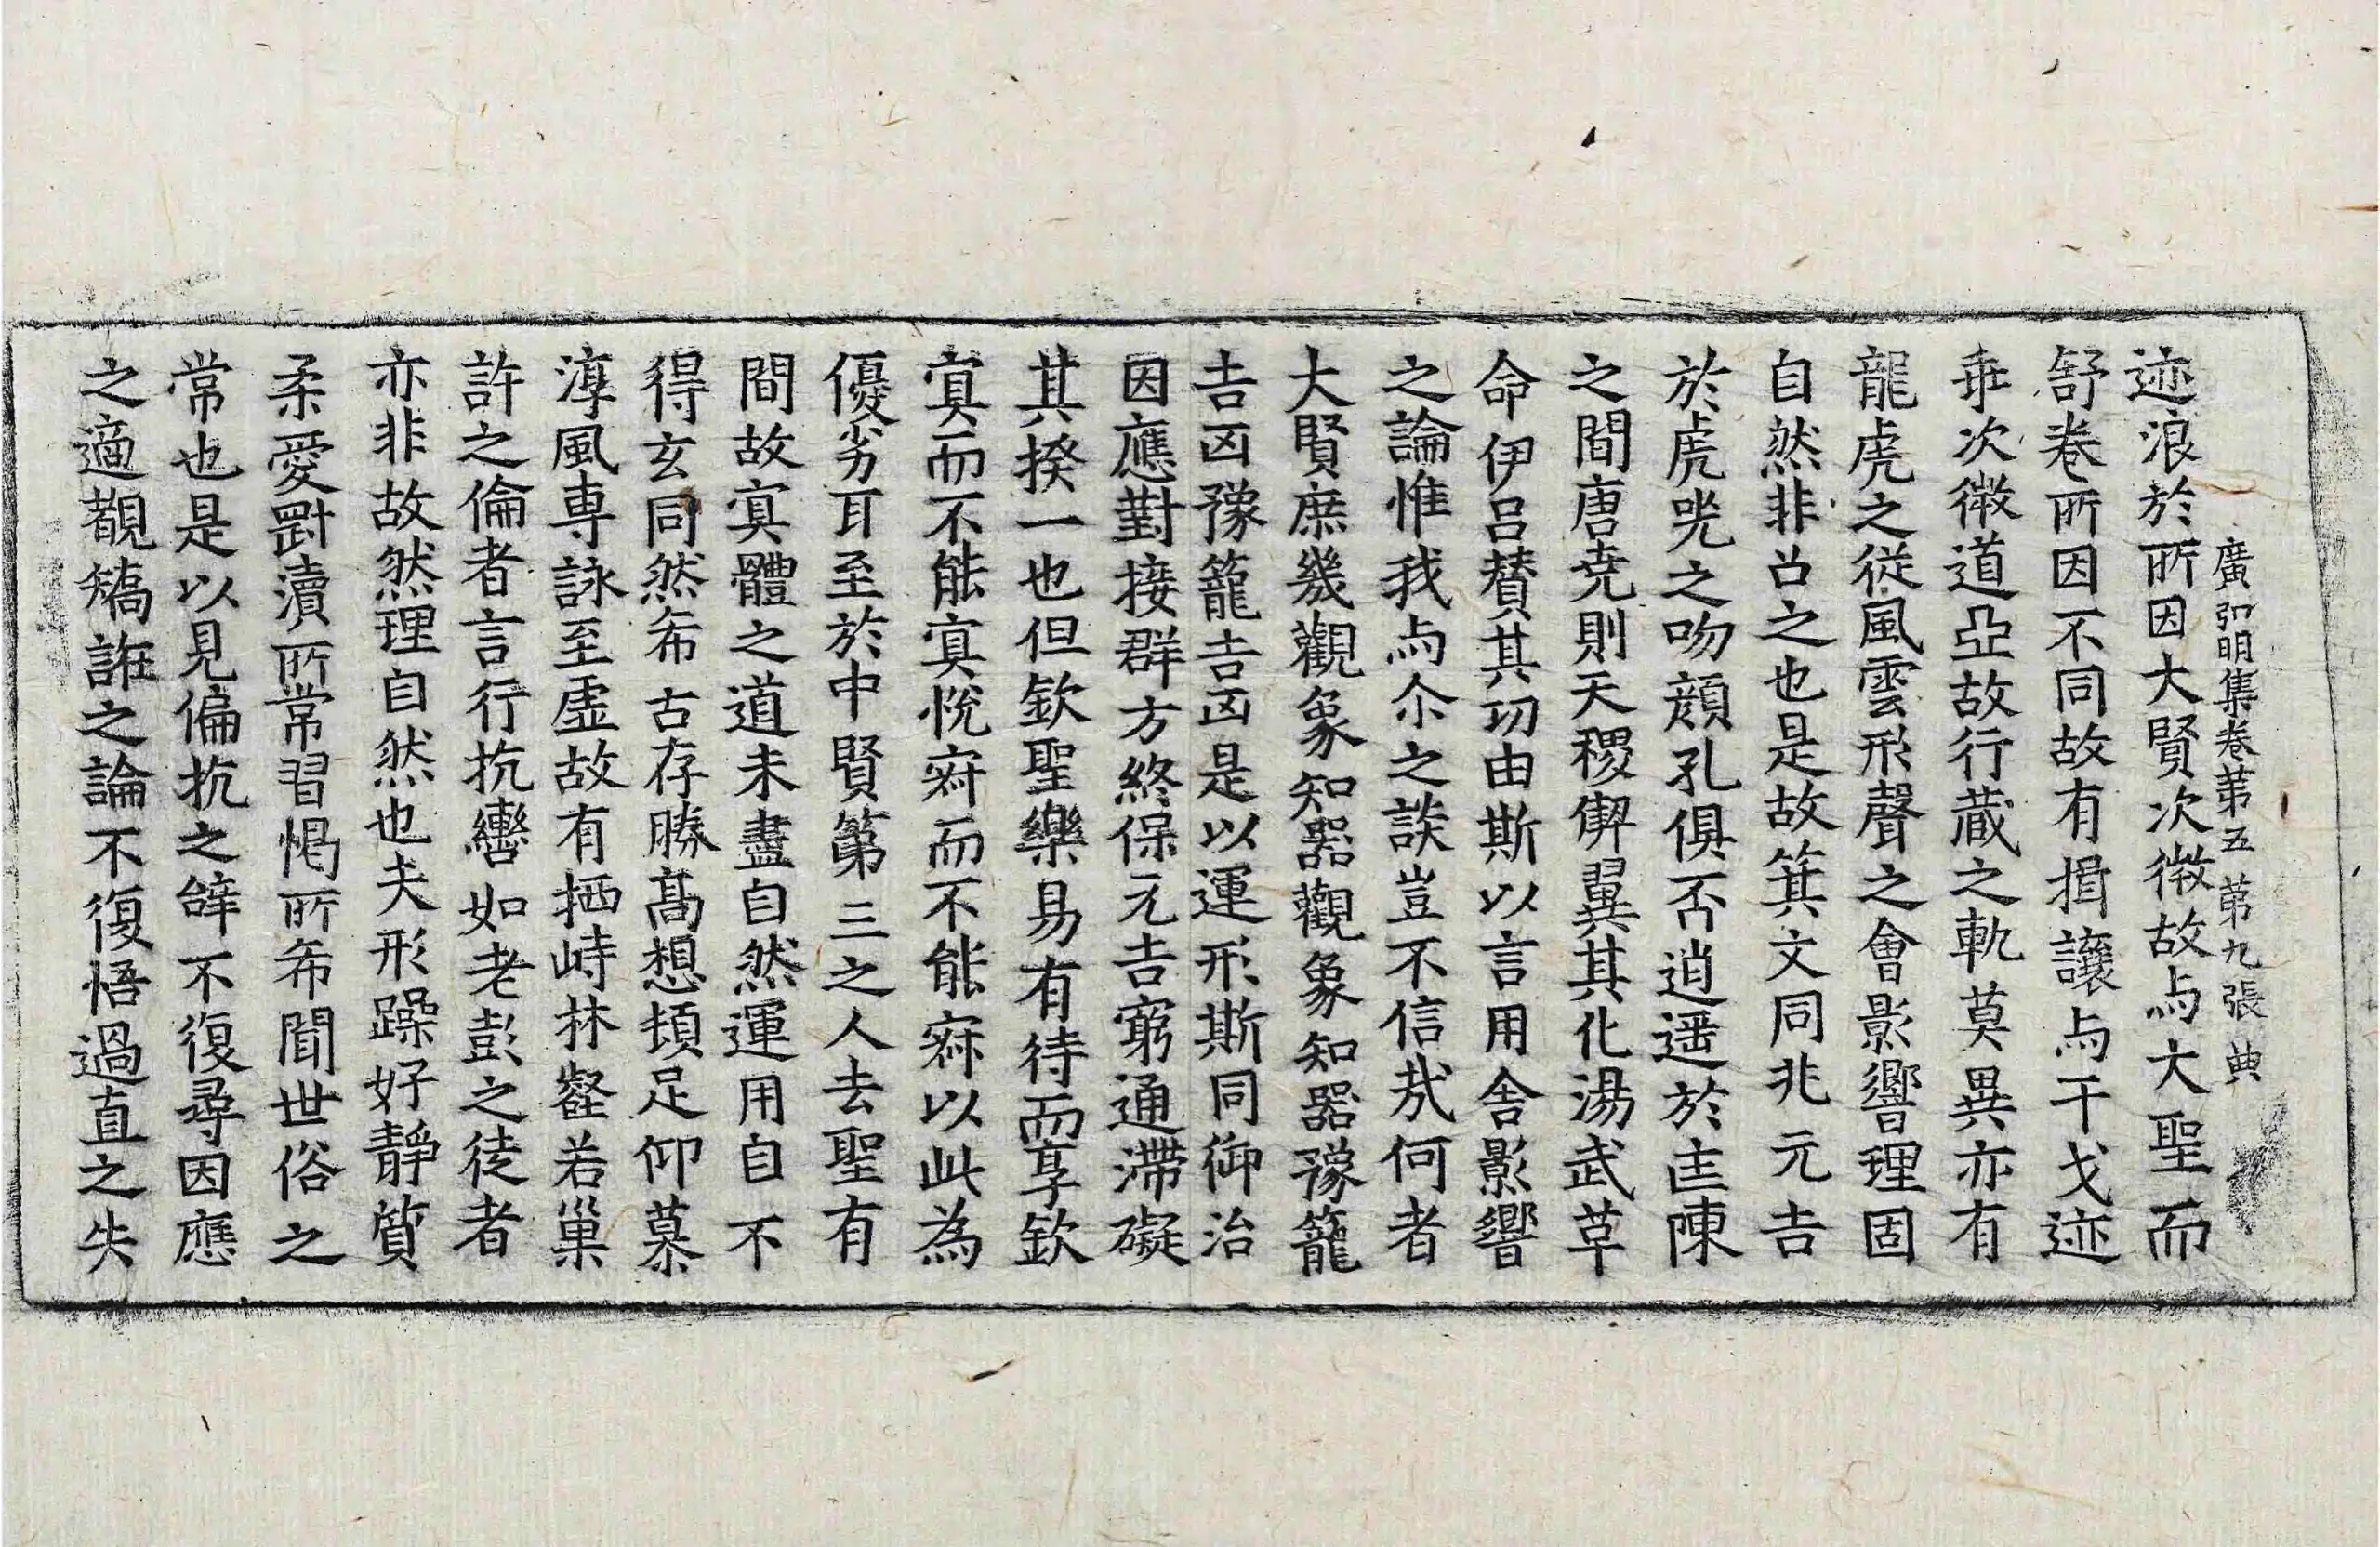 廣弘明集卷苐五　苐九張　典
迹浪於所因大賢次微故与大聖而
舒卷所因不同故有揖讓与干戈迹
乖次微道亞故行蔵之軌莫異亦有
龍虎之從風雲形聲之會影響理固
自然非召之也是故箕文同兆元吉
於虎兕之吻顔孔俱否逍遥於匡陳
之間唐堯則天稷偰翼其化湯武革
命伊吕賛其功由斯以言用舍影響
之論惟我与尒之談豈不信㢤何者
大賢庶幾觀象知器觀象知器豫籠
吉凶豫籠吉凶是以運形斯同御治
因應對接群方終保元吉窮通滯礙
其揆一也但欽聖樂易有待而享欽
冥而不能冥恱寂而不能寂以此為
優劣耳至於中賢第三之人去聖有
間故冥體之道未盡自然運用自不
得玄同然希古存勝髙想頓足仰慕
淳風專詠至虛故有栖峙林壑若巢
許之倫者言行抗轡如老彭之徒者
亦非故然理自然也夫形躁好靜質
柔愛剛瀆所常習愒所希聞世俗之
常也是以見偏抗之辝不復尋因應
之適覩矯誑之論不復悟過直之失